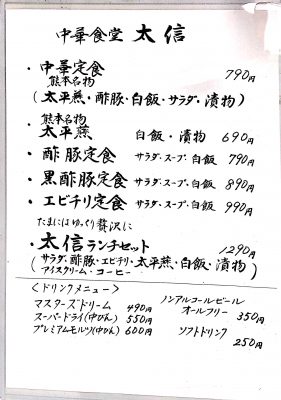 中華食堂 太信
・中華定食 790円
熊本名物
(太平燕・酢豚・白飯・サラダ・漬物)
熊本名物
・太平燕 白飯・漬物 690円
・酢豚定食 サラダ・スープ・白飯 790円
・黒酢豚定食 サラダ・スープ・白飯 890円
・エビチリ定食 サラダ・スープ・白飯 990円
たまにはゆっくり贅沢に
・太信ランチセット 1290円
(サラダ・酢豚・エビチリ・太平燕・白飯・漬物
アイスクリーム・コーヒー)
<ドリンクメニュー>
マスターズドリーム 490円
スーパードライ(中びん) 550円
プレミアムモルツ(中びん) 600円
ノンアルコールビール
オールフリー 350円
ソフトドリンク
250円